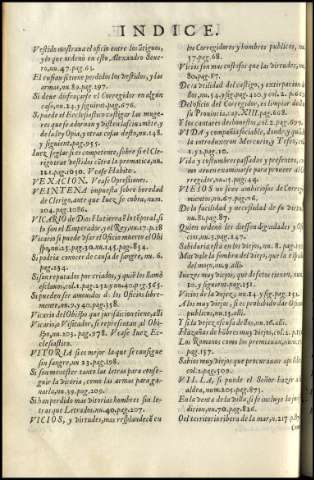 INDICE.
Vestido mostraua el oficio entre los ãtiguos,
y lo que ordenò en esto, Alexandro Seue-
ro, nu.47.pag.63.
El rufian si tiene perdidos los vestidos, y las
armas, nu.89.pag.197.
Si deue disfraçarse el Corregidor en algun
caso, nu.23.y siguient.pag.676.
Si puede el Eclesiastico castigar las muge-
res que
de la ley Opia, y otras cosas desto, nu.148.
y siguient.pag.955.
Iuez seglar si es competente, sobre si el Cle-
rigo trae vestidos côtra la prematica, nu.
121.pag.1050. Vease Habito.
VEXACION. Vease Opressiones.
VEINTENA impuesta sobre heredad
de Clerigo, ante que Iuez se cobra, num.
204.pag.1086.
VICARIO de Dios en la tierra en lo temporal, si
lo son el Emperador, y el Rey, nu.17.p.18
Vicario si puede vsar el Oficio muerto el Obi-
spo, nu.25.pag.30.nu.145.pag.854.
Si podria conocer de causa de sangre, nu.6.
pag.234.
Si son reputados por criados, y que los llamò
esclauos, col.2.pag.252.y nu.140.p.565.
Si pueden ser amouidos de los Oficios libre-
mente, nu.39.y 40.pag.258.
Vicario del Obispo que jurisdicion tiene, alli
Vicario, o Visitador, si representan al Obi-
spo, nu.203. pag.978. Vease Iuez Ec-
clesiastico.
VITORIA si es mejor la que se consigue
sin sangre, nu.23.pag.198.
Si son menester tanto las letras para conse-
guir la vitoria, como las armas para ga-
narla, nu.39.pag.206.
Si han perdido mas vitorias hombres sin le-
tras que Letrados, nu.40.pag.207.
VICIOS, y virtudes, mas resplandecẽ en
los Corregidores y hombres publicos, nu.
37.pag.68.
Vicios son mas costosos que las virtudes, nu.
80.pag.87.
De la vtilidad del castigo, y extirpacion de
llos, nu.54.y sig.pag.410.y col.2.p.663.
Del oficio del Corregidor, es limpiar dellos
su Prouincia, cap.XIII.pag.608.
Y los cantares deshonestos, col.2.pag.609.
VIDA y compañia sociable, donde y quien
la introduxo en Mercurio y Teseo, col.
2.pag.10.
Vida y costumbres passadas y presentes, si
en el Corregidor
regirse, nu.15.pag.44.
VIEJOS no sean ambiciosos de Corregi-
mientos, nu.67.pag.76.
De la facilidad y necessidad de su vida,
nu.81.pag.87.
Quien ordenò les diessen dignidades y Ofi-
cios, nu.23.pag.247.
Sabiduria està en los viejos, nu.8.pag.280.
Mas vale la sombra del viejo, que la espada
del moço, nu.9.alli.
Iuez muy viejo, que defetos tienen, nu.
10.y siguien.pag.151.
Vicios de la vejez, nu.24.y sig.pag.251.
Al muy viejo, si es prohibido dar Oficios
publicos, nu.25.alli.
Si la vejez escusa de los, nu.26.alli.
Hazañas de hõbres muy viejos, col.2.p.250
Los Romanos como los premiauan, num.27.
pag.157.
Sobre muy viejo, que procuraua aprẽder,
col.2.pag.509.
VILLA, si puede el Señor hazer a su
aldea, nu.205.pag.813.
En la venta de la villa, si se incluye la juris-
dicion, nu.70.pag.826.
O el territorio ribera de la mar, n.217.p.87